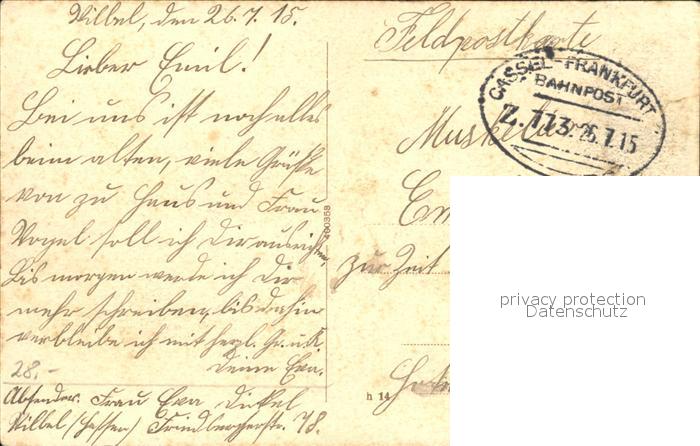 Vilbel, den 26.7.15.
Lieber Emil!
Bei uns ist noch alles
beim alten, viele Grüße
von zu Haus und Frau
Vogel soll ich Dir ausrichten,
bis morgen werde ich Dir
mehr schreiben, bis dahin
verbleibe ich mit herzl. Gr. u. K
Deine Eva.
28.-
Absender. Frau Eva Dickel
Vilbel (Hessen) Friedbergerstr. 78.
360358
Feldpostkarte
CASSEL-FRANKFURT
BAHNPOST
Z.173 26.7.15
Musketier
Em
zur Zeit
h 14
privacy protection
Datenschutz